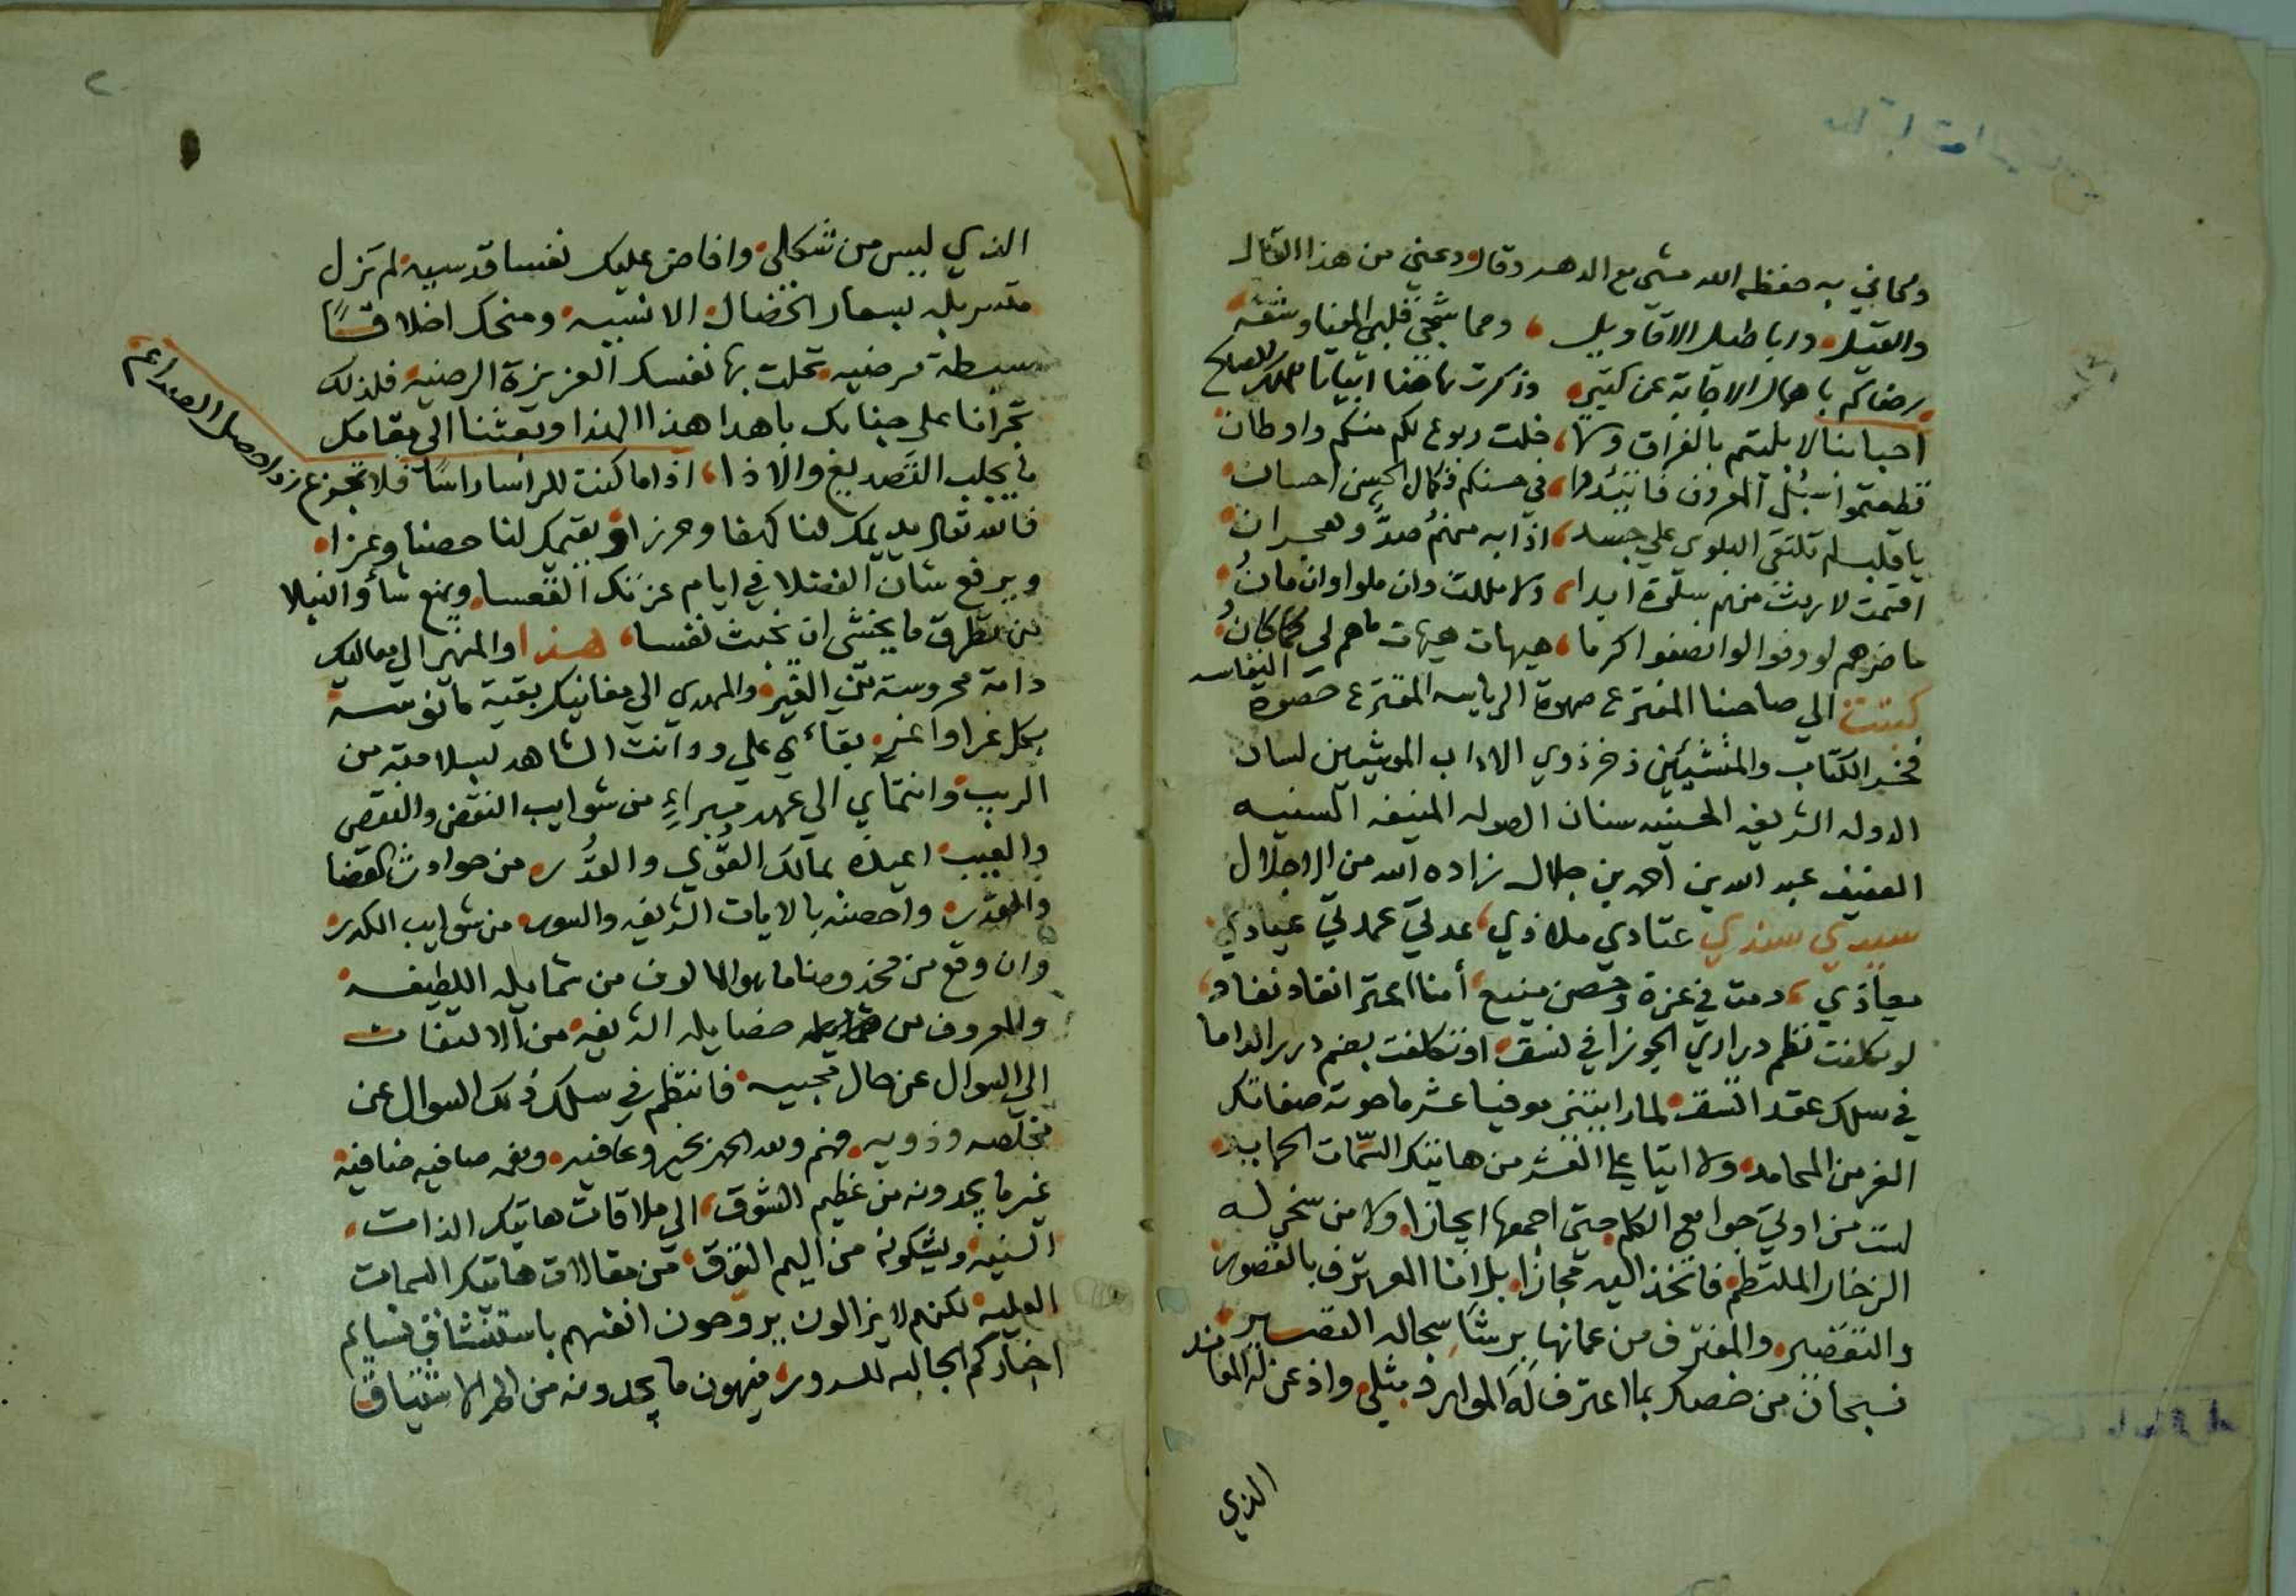 ومجانبي به حفظه الله مشى مع الدهر وقال ودعني من هذا القال
والقيل واباطيل الاقاويل ومما شجى قلبي المعنا وشقه
رضاكم باهمال الاجابة عن كتبي وذكرت هاهنا ابياتا
احبابنا لا بليتم بالفراق ولا خلت ربوع لكم منكم واوطان
قطعتموا سبل المعروف فابتدوا في حسنكم فكمال الحسن احسان
يا قلب لم تلتقى البلوى على جسد اذا به منهم صد وهجران
اقسمت لا رمت منهم سلوة ابدا ولا مللت وان ملوا وان مانوا
ما ضرهم لو وفوا لو انصفوا كرما هيهات هيهات ما هم لي كما كانوا
كتبت الى صاحبنا المفترع صهوة الرياسه المقترع حصوة النفاسه
فخر الكتاب والمنشيئن ذخر ذوي الاداب الموشيين لسان
الدوله الشريفه الحسنيه سنان الصوله المنيفه السنيه
العفيف عبد الله بن احمد بن جلال زاده الله من الاجلال
سيدي سندي عتادي ملاذي عدتي عمدتي عيادي
معاذي دمت في عزة وحصن منيع أمنا
لو تكلفت نظم دراري الجوزا في نسق او تكلفت بضم درر الداما
في سلك عقد اتسق لما رايتني موفيا عشر ما حوته صفاتك
الغر من المحامد ولا اتيا على العشر من هاتيك السمات
لست من اوتي جوامع الكلم حتى اجمعها ايجازا ولا من سخر له
الزخار الملتطم فاتخذ اليه مجازا بل انا المعترف بالقصور
والتقصير والمغترف من عمانها برشا سجاله القصير
فسبحان من خصك بما اعترف له الموارد مثلي واذعن له المعاند
الذي
الذي ليس من شكلي وافاض عليك نفسا قدسيه لم تزل
متسربله بسعار الخصال الانسيه ومنحك اخلاقًا
سبطة مرضيه تحلت بها نفسك العزيزة الرضيه فلذلك
تجرانا على جنابك باهدا هذا الهذا وبعثنا الى مقامك
ما يجلب التصديع والاذا اذا ما كنت للراسا راسًا فلا تجزع
فالله تعالى يديمك لنا كهفا وحرزا ويقيمك لنا حصنا وعزا
ويرفع شان الفضلا في ايام عزتك القعسا ويمنع شأو النبلا
من تطرق ما يخشى ان يخبث نفسا هذا والمنهي الى معاليك
دامة محروسة من الغير والمهدي الى مغانيك بقية مانوسة
بكل غرا واغر بقائي على ود انت الشاهد بسلامته من
الريب وانتمائي الى عهد مبراء من شوايب النقض والنقص
والعيب اعيذه بمالك القوي والقدر من حوادث القضا
والقدر واحصنه بالايات الشريفه والسور من شوايب الكدر
وان وقع من مخدومنا ما هو المالوف من شمايله اللطيفه
والمعروف من فضايله الشريفه من الالتفات
الى السوال عن حال محبيه فانتظم في سلك ذلك السوال عن
مخلصه وذويه فهم ولله الحمد بخير وعافيه ونعمه صافيه ضافيه
غير ما يجدونه من عظيم الشوق الى ملاقات هاتيك الذات
السنيه ويشكونه من اليم التوق من مقالات هاتيك السمات
العليه لكنهم لا يزالون يروحون انفسهم باستنشاق نسايم
اخباركم الجالبه للسرور فيهون ما يجدونه من الم الاشتياق